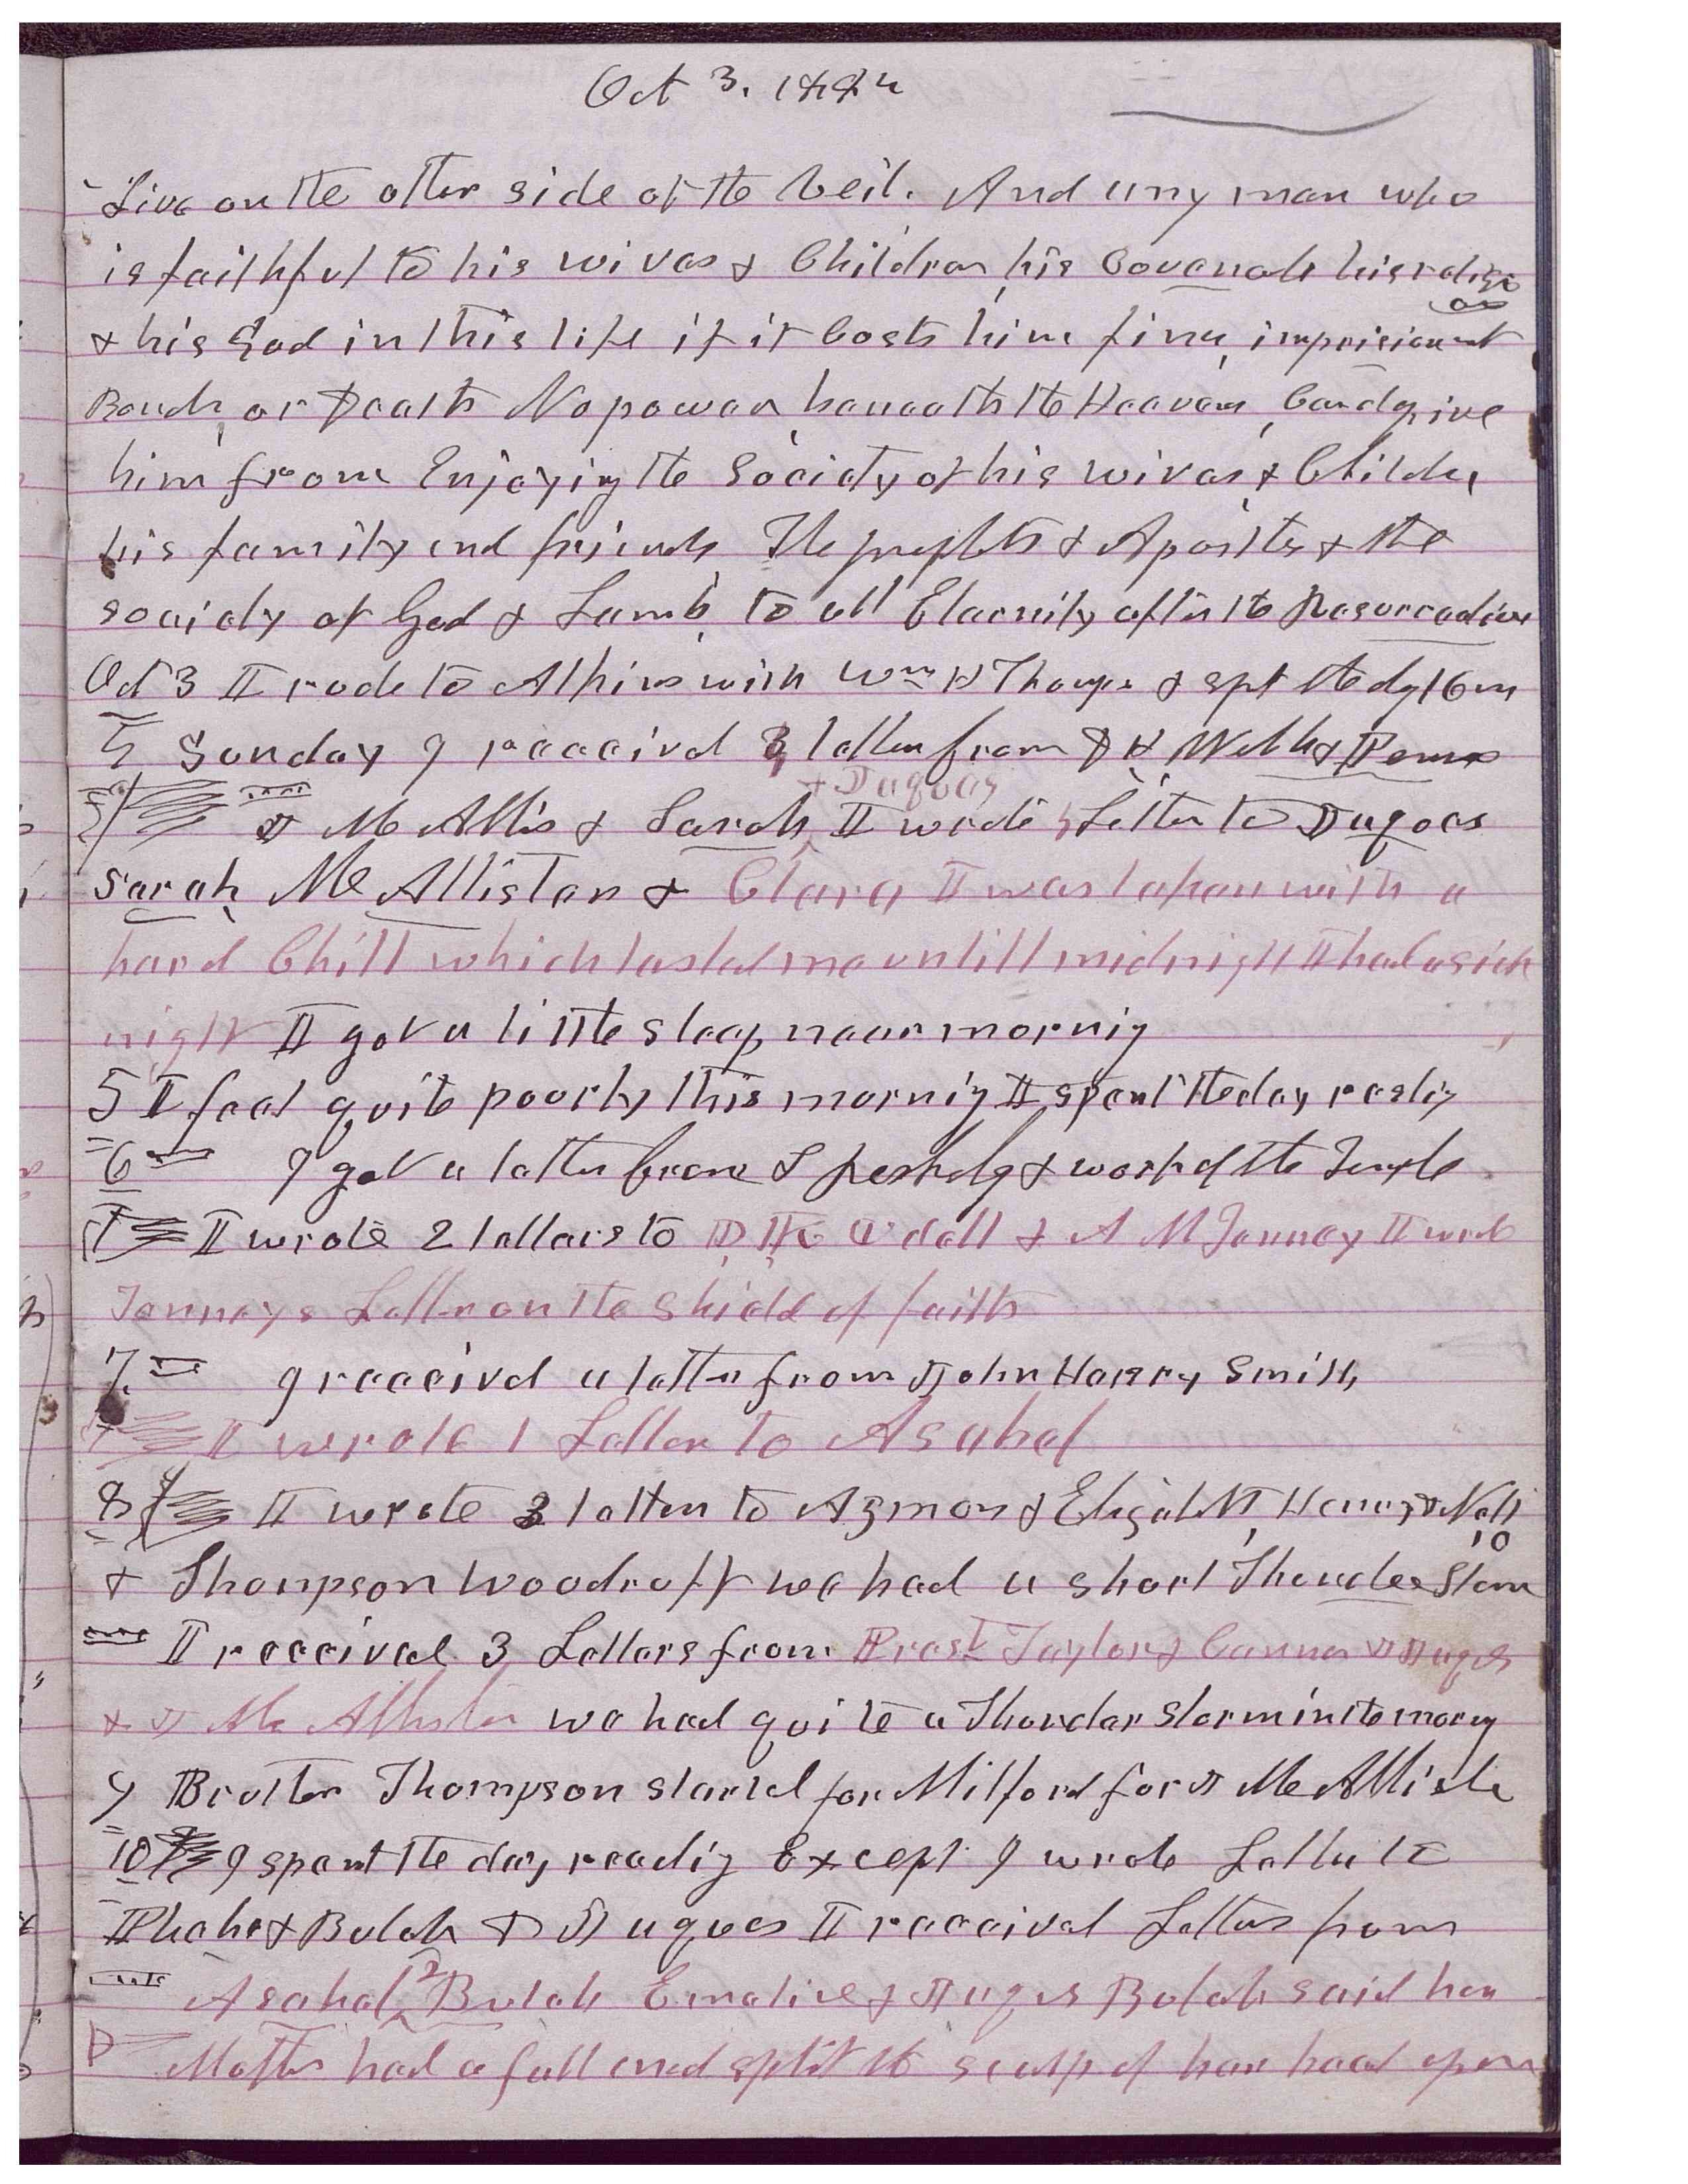 Oct 3. 1885
Live on the other side of the veil. And any man who
is faithful to his wives & Children his Covenants his religion
& his God in this life if it Costs him fine, imprisionmt
Bonds, or Death No power beneath the Heavens, Can deprive
him from Enjoying the Society of his wives & Childn
his family and friends The prophets & Apostles & the
society of God & Lamb, to all Etarnity after the Resurrection
Oct 3 I rode to Atkins with Wm H Thompsn & spt the dy 16 m
Sunday I received 3 letters from D H Wells
& Jaques
Mc Allis & Sarah I wrote Letter to Jaques
Sarah, McAllister & Clara I was taken with a
hard Chill which lasted me untill midnight I had a sick
night I got a little sleep near mornig
5 I feel quite poorly this mornig I spent the day restig
6 I got a letter from L & workd the Temple
I wrote 2 letters to D K Udall & A M Tenney I wrote
Tenneys Letter on the shield of faith
7. I receivd a letter from John Henry Smith
I wrote 1 Letter to Asahel
8 I wrote 3 letters to Azmon & Elizabeth, Henry & Nelli
& Thompson Woodruff we had a short Thunder Storm
10
I received 3 Letters from Prest Taylor & Cannon Jaques
& J McAllister we had quite a Thunder storm in the mornig
9 Brother Thompson started for Milford for J McAllister
10 I spent the day readig Except I wrote Letters to
Phebe & Bulah & Jaques I received Letters from
Asahel, 2 Bulah Emeline & Jaques Bulah said her
Mother had a fall and split the scalp of her head open